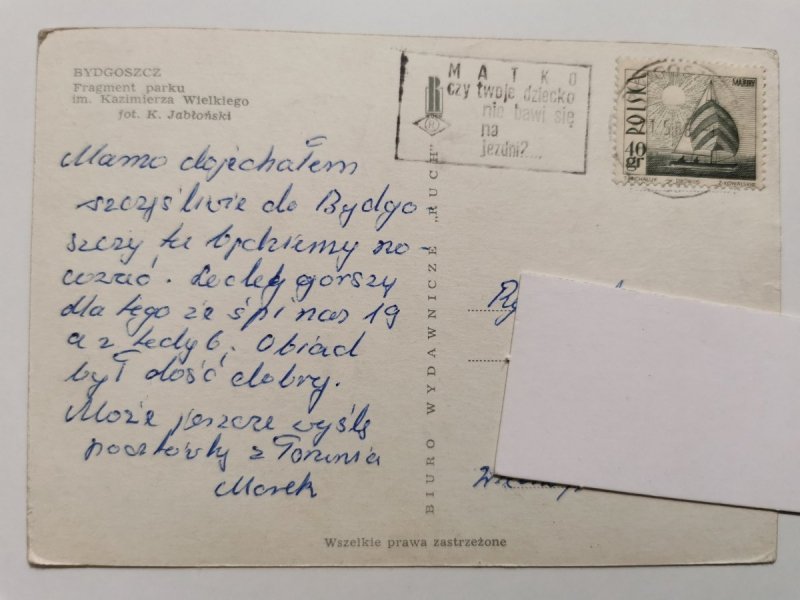 BYDGOSZCZ
Fragment parku
im. Kazimierza Wielkiego
fot. K. Jabłoński
Mamo dojechałem
szczęśliwie do Bydgo
szczy tu będziemy no-
cować.
gorszy
dla tego że śpi nas 19
a z tedy 6. Obiad
był dość dobry.
Może jeszcze wyślę
pocztówkę z Torunia
Marek
BIURO WYDAWNICZE „RUCH"
MATKO
czy twoje dziecko
nie bawi się
na
jezdni?...
POLSKA
40 gr
Wszelkie prawa zastrzeżone